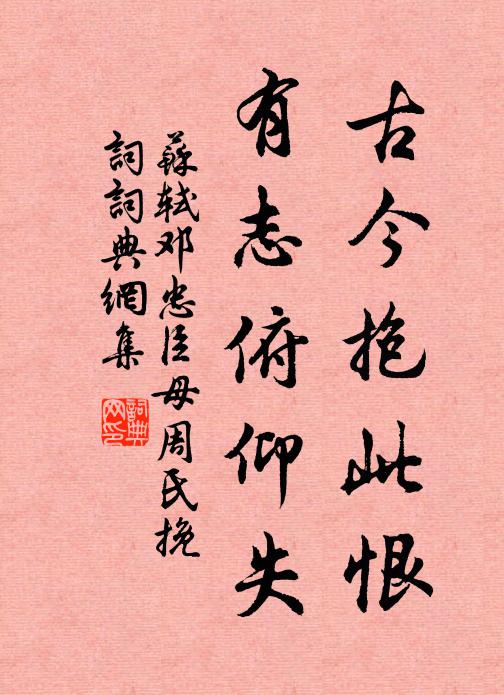 古今抱此恨
有志俯仰失
蘇軾邓忠臣母周氏挽
詞詞典網集
詞典
网印